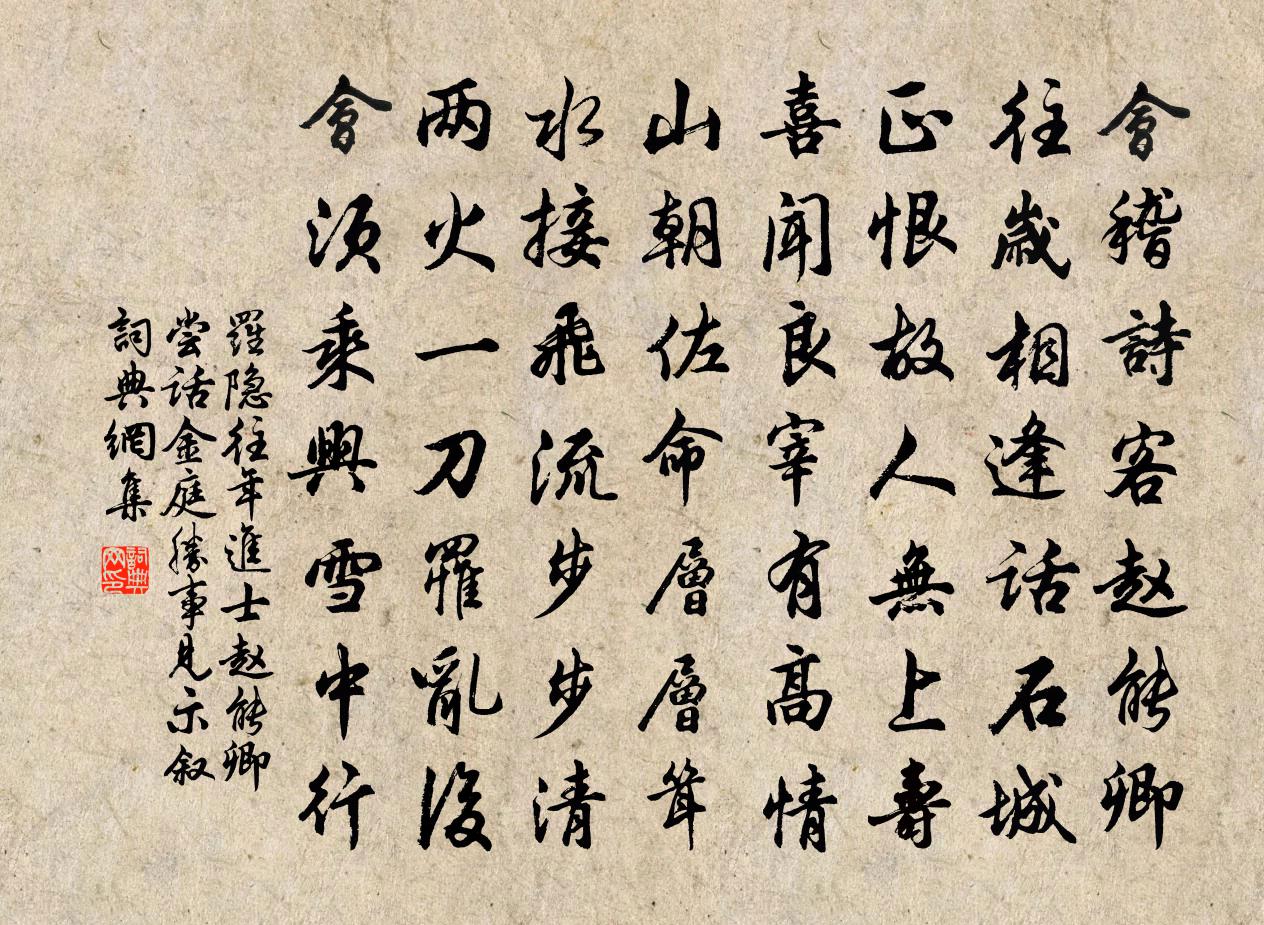 會稽詩客赵能卿
往歲相逢話石城
正恨故人無上壽
喜聞良宰有高情
山朝佐命層層耸
水接飛流步步清
两火一刀罹亂後
會須乘興雪中行
羅隐往年進士赵能卿
尝話金庭勝事見示叙
詞典網集
詞典网印